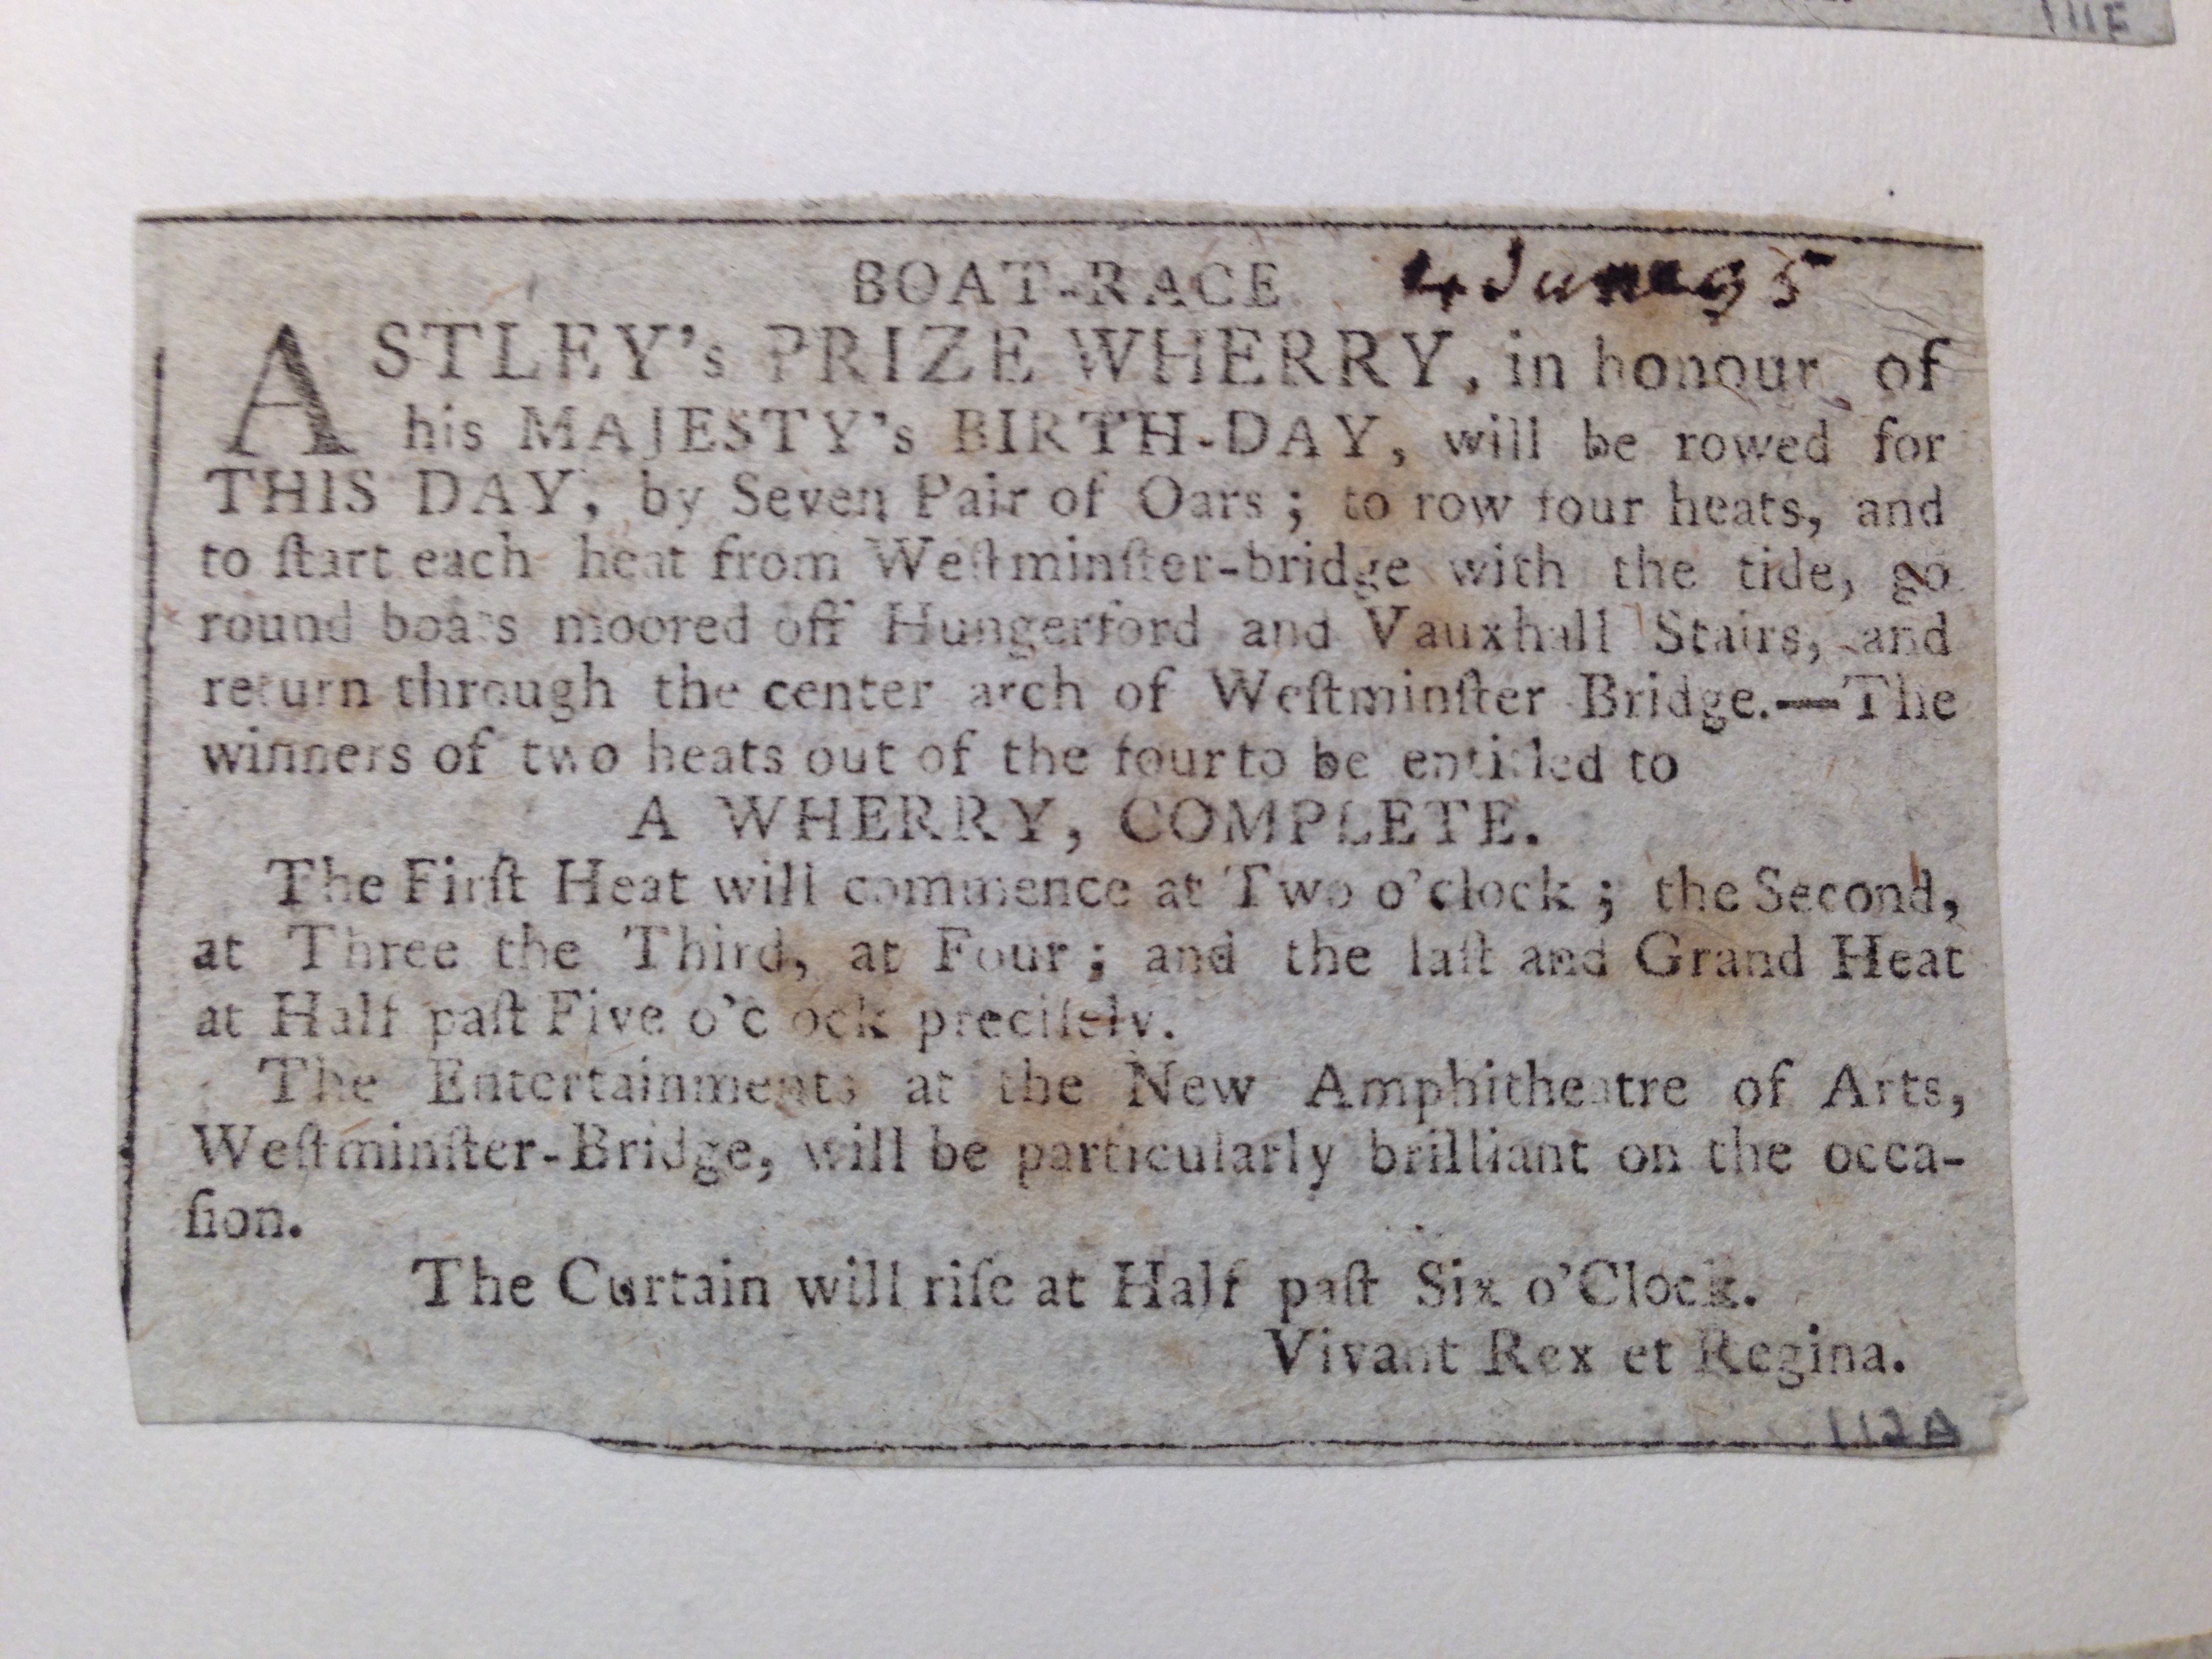 111E
BOAT-RACE 4 June 95
ASTLEY's PRIZE WHERRY, in honour of
his MAJESTY's BIRTH-DAY, will be rowed for
THIS DAY, by Seven Pair of Oars; to row four heats, and
to ſtart each heat from Weſtminſter-bridge with the tide, go
round boats moored off Hungerford and Vauxhall Stairs, and
return through the center arch of Weſtminſter Bridge.—The
winners of two heats out of the four to be entitled to
A WHERRY, COMPLETE.
The Firſt Heat will commence at Two o'clock; the Second,
at Three the Third, at Four; and the laſt and Grand Heat
at Half paſt Five o'clock preciſely.
The Entertainments at the New Amphitheatre of Arts,
Weſtminſter-Bridge, will be particularly brilliant on the occa-
ſion.
The Curtain will riſe at Half paſt Six o'Clock.
Vivant Rex et Regina.
112A